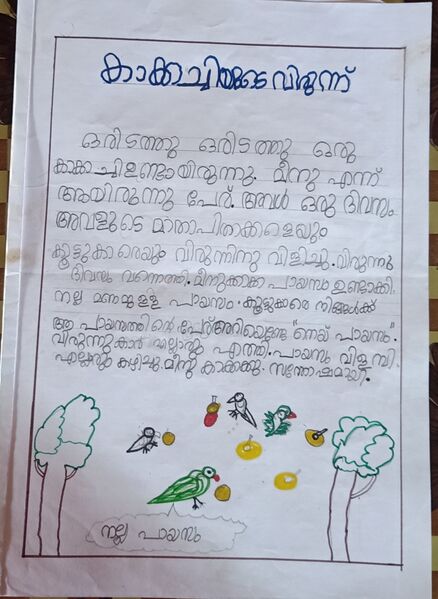 കാക്കച്ചിയുടെ വിരുന്ന്
ഒരിടത്തു ഒരിടത്തു ഒരു
കാക്കച്ചി ഉണ്ടായിരുന്നു. മീനു എന്ന്
ആയിരുന്നു പേര്. അവൾ ഒരു ദിവസം
അവളുടെ മാതാപിതാക്കളെയും
കൂട്ടുകാരെയും വിരുന്നിനു വിളിച്ചു. വിരുന്നു
ദിവസം വന്നെത്തി. മീനുക്കാക്ക പായസം ഉണ്ടാക്കി.
നല്ല മണമുള്ള പായസം. കൂട്ടുക്കാരെ നിങ്ങൾക്ക്
ആ പായസത്തിന്റെ പേര് അറിയെണ്ടേ "നെയ് പായസം".
വിരുന്നുകാർ എല്ലാരും എത്തി. പായസം വിളമ്പി.
എല്ലാരും കഴിച്ചു. മീനു കാക്കക്കു സന്തോഷമായി.
നല്ല പായസം